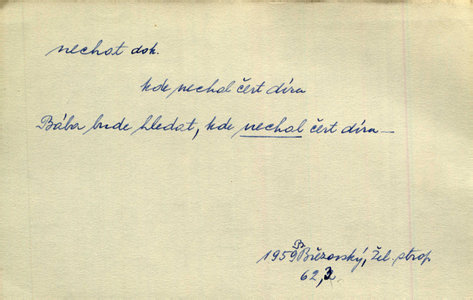 nechat dok.
kde nechal čert díru
Bába bude hledat, kde nechal čert díru –
1959 Březovský, Žel. strop
62,